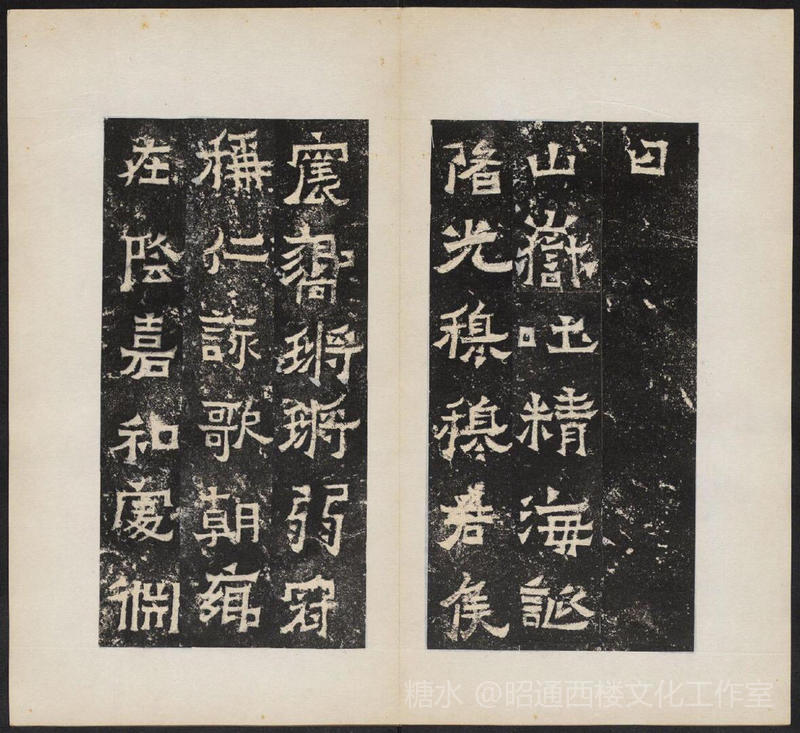 曰
山嶽吐精海誕
陼光穆穆君侯
震響鏘鏘弱冠
稱仁詠歌朝鄉
在陰嘉和處淵
糖水 @昭通西楼文化工作室